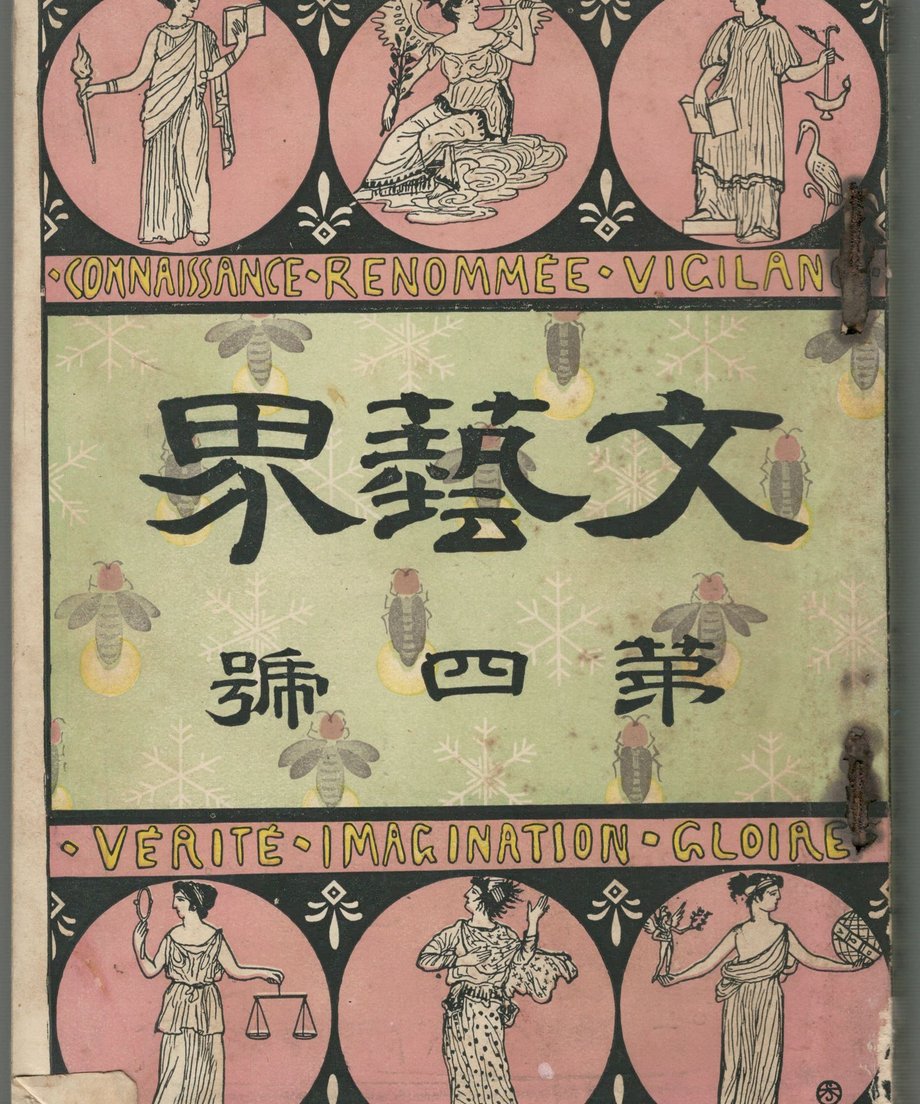 ·CONNAISSANCE·RENOMMÉE·VIGILAN
文藝界
第四號
·VÉRITÉ·IMAGINATION·GLOIRE